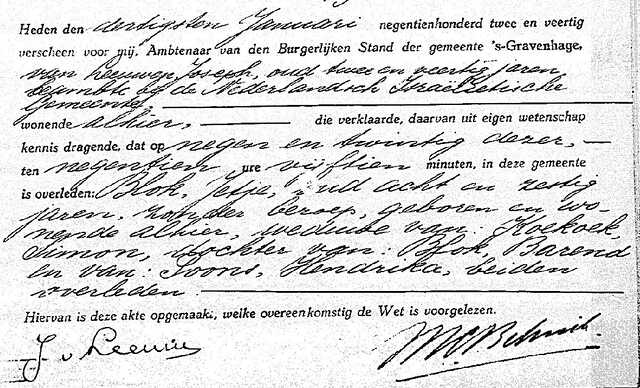 Heden den dertigsten Januari negentienhonderd twee en veertig
verscheen voor mij, Ambtenaar van den Burgerlijken Stand der gemeente 's-Gravenhage,
van Leeuwen, Joseph, oud twee en veertig jaren
beambte bij de Nederlandsch Israëlietische
Gemeente,
wonende alhier, die verklaarde, daarvan uit eigen wetenschap
kennis dragende, dat op negen en twintig dezer,
ten negentien ure vijftien minuten, in deze gemeente
is overleden: Blok, Jetje, oud acht en zestig
jaren, zonder beroep, geboren en wo-
nende alhier, weduwe van: Koekoek,
Simon, dochter van: Blok, Barend
en van: Soons, Hendrika, beiden
overleden.
Hiervan is deze akte opgemaakt, welke overeenkomstig de Wet is voorgelezen.
J v Leeuwen